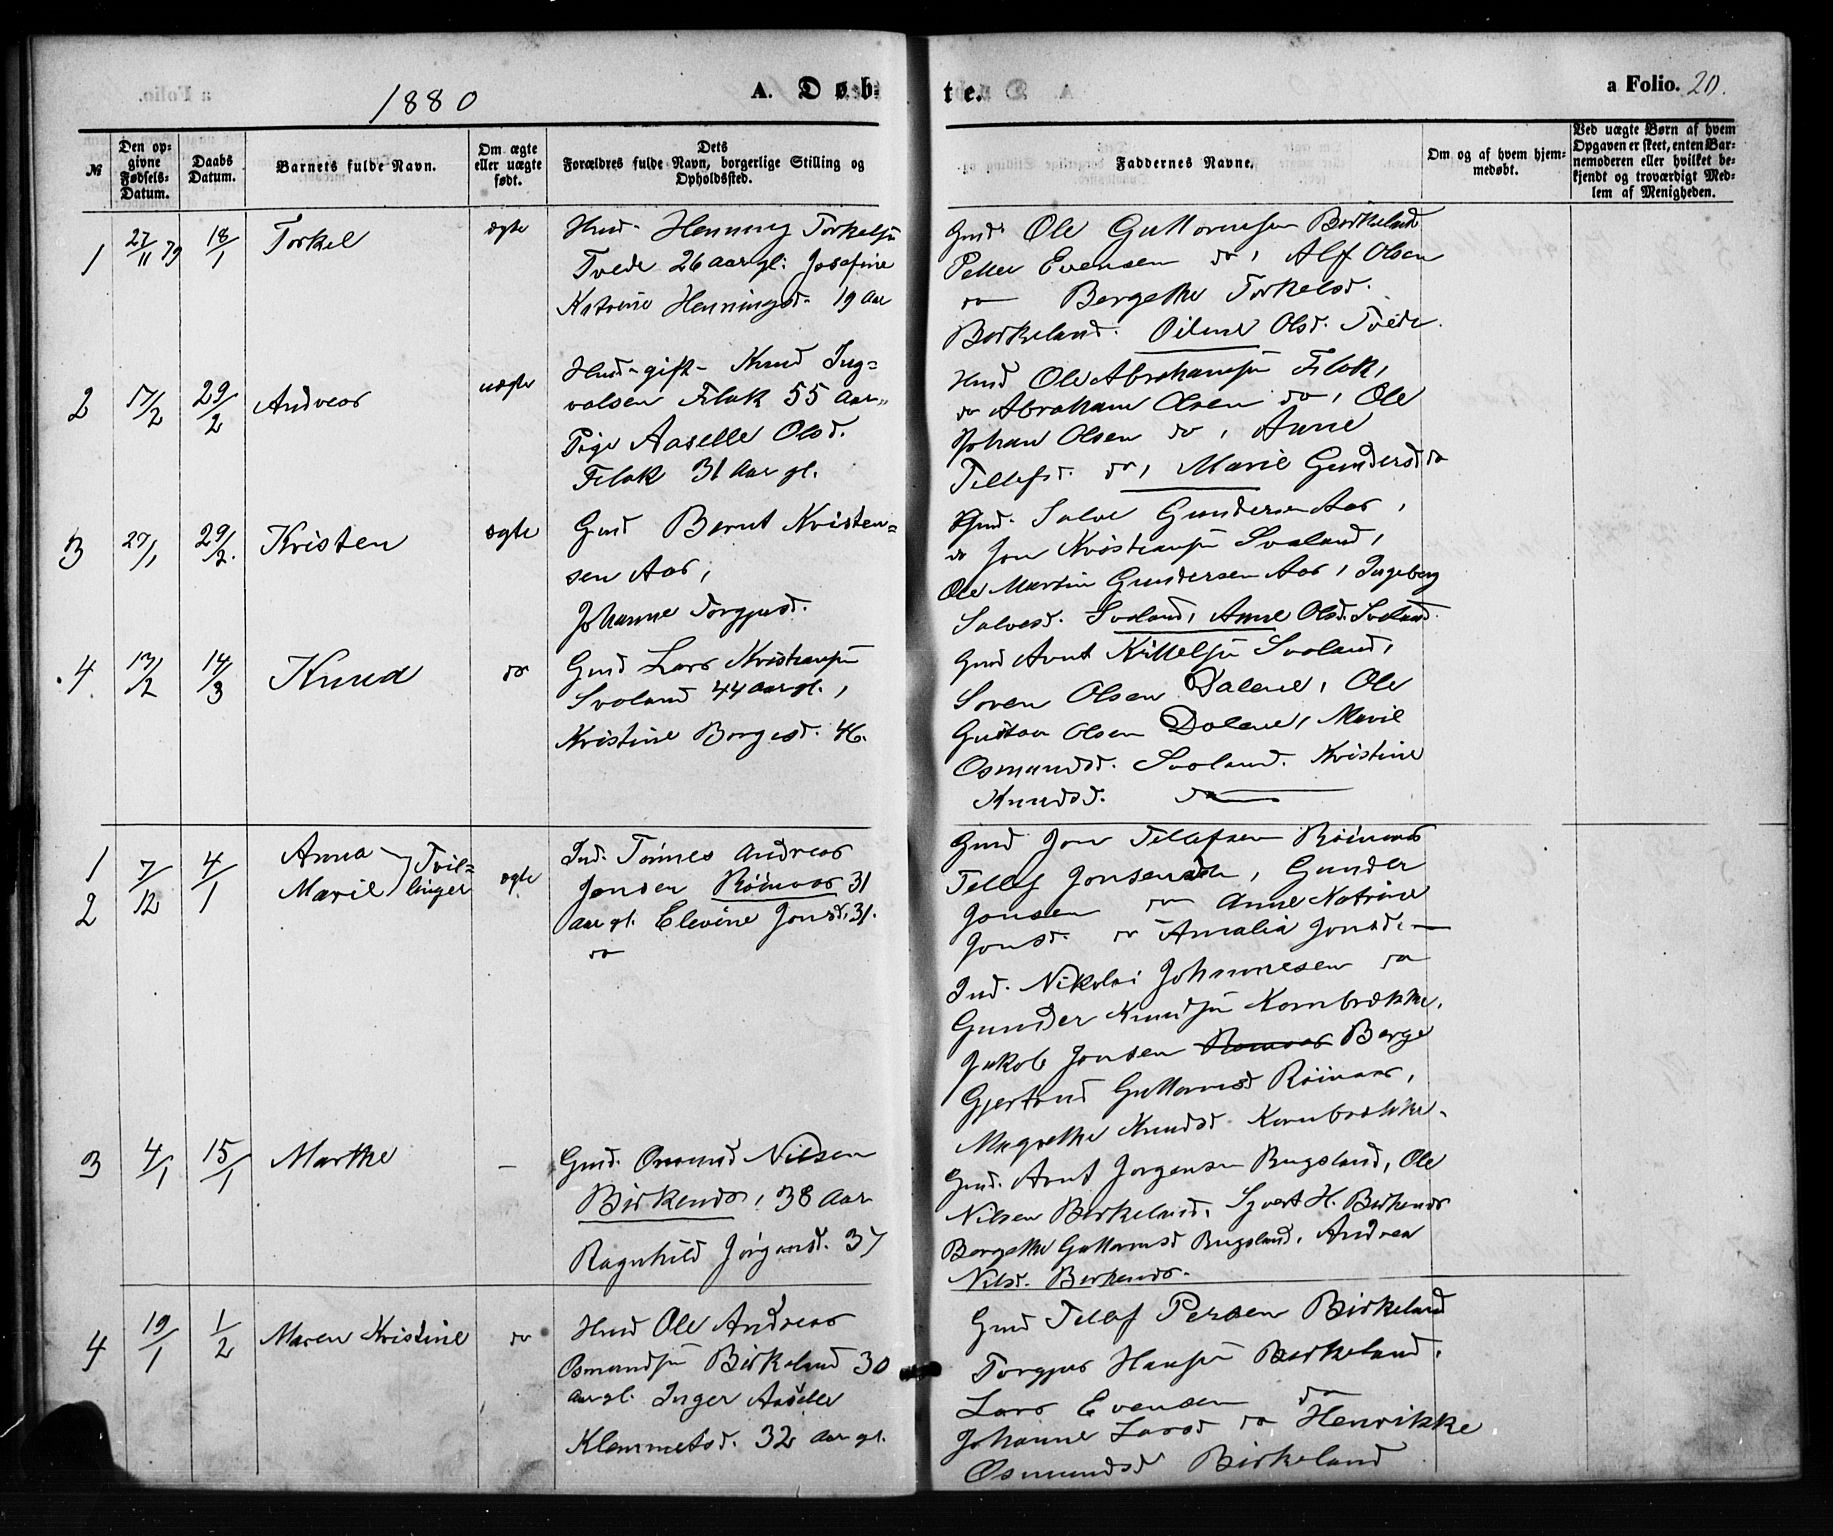 1880
A. Døb-
te.
a Folio. 20.
№
Den op-
givne
Fødsels-
Datum.
Daabs
Datum.
Barnets fulde Navn.
Om ægte
eller uægte
født.
Dets
Forældres fulde Navn, borgerlige Stilling og
Opholdssted.
Faddernes Navne.
Om og af hvem hjem-
medøbt.
Ved uægte Børn af hvem
Opgaven er skeet, enten Bar-
nemoderen eller hvilket be-
kjendt og troværdigt Med-
lem af Menigheden.
1
27/11 79
18/1
Torkel
ægte
Hmd. Henning Torkelsen
Tvede 26 aar gl: Josefine
Katrine Henningsd. 19 Aar
Gmd. Ole Guttormsen Birkeland
Peder Evensen do, Alf Olsen
do Bergethe Torkelsd.
Birkeland. Oline Olsd. Tvede.
2
17/2
29/2
Andreas
uægte
Hmd - gift - Knud Ing-
valsen Flak 55 Aar,
Pige Aaselle Olsd.
Flak 31 Aar gl.
Hmd Ole Abrahamsen Flak,
do Abraham Olsen do, Ole
Johan Olsen do, Anne
Tellefsd. do, Marie Gundersd do
3
27/1
29/2.
Kristen
ægte
Gmd Bernt Kristen-
sen Aas,
Johanne Torgjusd.
Gmd. Salve Gundersen Aas,
do Jon Kristiansen Svaland,
Ole Martin Gundersen Aas, Ingeborg
Salvesd. Svaland, Anne Olsd. Svaland.
4
13/2
14/3
Knud
do
Gmd Lars Kristiansen
Svaland 44 aar gl.,
Kristine Borgesd. 46.
Gmd Arnt Kittelsen Svaland,
Soren Olsen Dalene, Ole
Gustav Olsen Dalene, Marie
Osmundsd. Svaland. Kristine
Knudsd. do
1
2
7/12
4/1
Anna
Marie
Tvil-
linger
ægte
Ind. Tønnes Andreas
Jensen Röinaas 31
aar gl. Elevine Jonsd. 31.
do
Gmd Jon Tellefsen Röinaas
Tellef Jonsen do, Gunder
Jonsen do Anne Katrine
Jonsd. do Amalia Jonsd. —
Ind. Nikolai Johannesen do
Gunder Knudsen Kornbrække.
Jakob Jonsen Berge
Gjertrud Guttormsd Röinaas,
Magrethe Knudsd Kornbrække.
3
4/1
15/1
Marthe
—
Gmd. Osmund Nilsen
Birkenes, 38 Aar
Ragnhild Jørgensd. 37
Gmd. Arnt Jorgensen Bugsland, Ole
Nilsen Birkeland, Syvert H. Birkenes
Bergethe Guttormsd Bugsland, Andrea
Nilsd. Birkenes.
4
19/1
1/2
Maren Kristine
do
Hmd Ole Andreas
Osmundsen Birkeland 30
aar gl. Inger Aaselle
Klemmetsd. 32 Aar gl.
Gmd Tellef Persen Birkeland
Torgjus Hansen Birkeland.
Lars Evensen do
Johanne Larsd do Henrikke
Osmundsd Birkeland